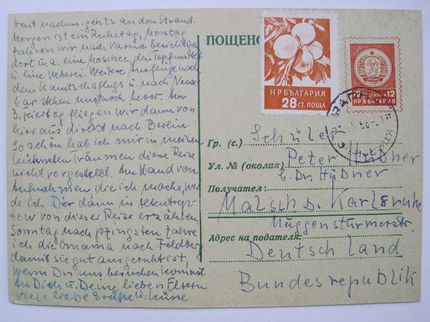 heut nachm. gehts an den Strand.
Morgen ist ein Ruhetag, Montag
fahren wir nach Varna besichtigen
dort u.a. eine Moschee, den
u. eine Weberei. Weitere Ausflüge nach
dem Landschafts u. nach
bar stehen uns noch bevor. Am
Dienstag fliegen wir dann von
hier aus direkt nach Berlin.
So schön hab ich mir in meinen
kühnsten Träumen diese Reise
nicht vorgestellt. An Hand von
Aufnahmen die ich mache, wer
de ich Dir dann in
von dieser Reise erzählen.
Sonntag nach Pfingsten fahre
ich die Omama nach Feldberg
damit sie gut ausgeruht ist,
wenn Du uns besuchen kommst.
An Dich u. Deine lieben Eltern
viele liebe Grüße u. Küsse
ПОЩЕНС
НР БЪЛГАРИЯ
28 СТ. ПОЩА
12
НР БЪЛГАРИЯ
Гр. (с.)
Schüler
Ул. № (околия)
Peter Hübner
b. Dr. Hübner
Получател:
Malsch b. Karlsruhe
Muggensturmerstr.
Адрес на подателя:
Deutschland
Bundesrepublik